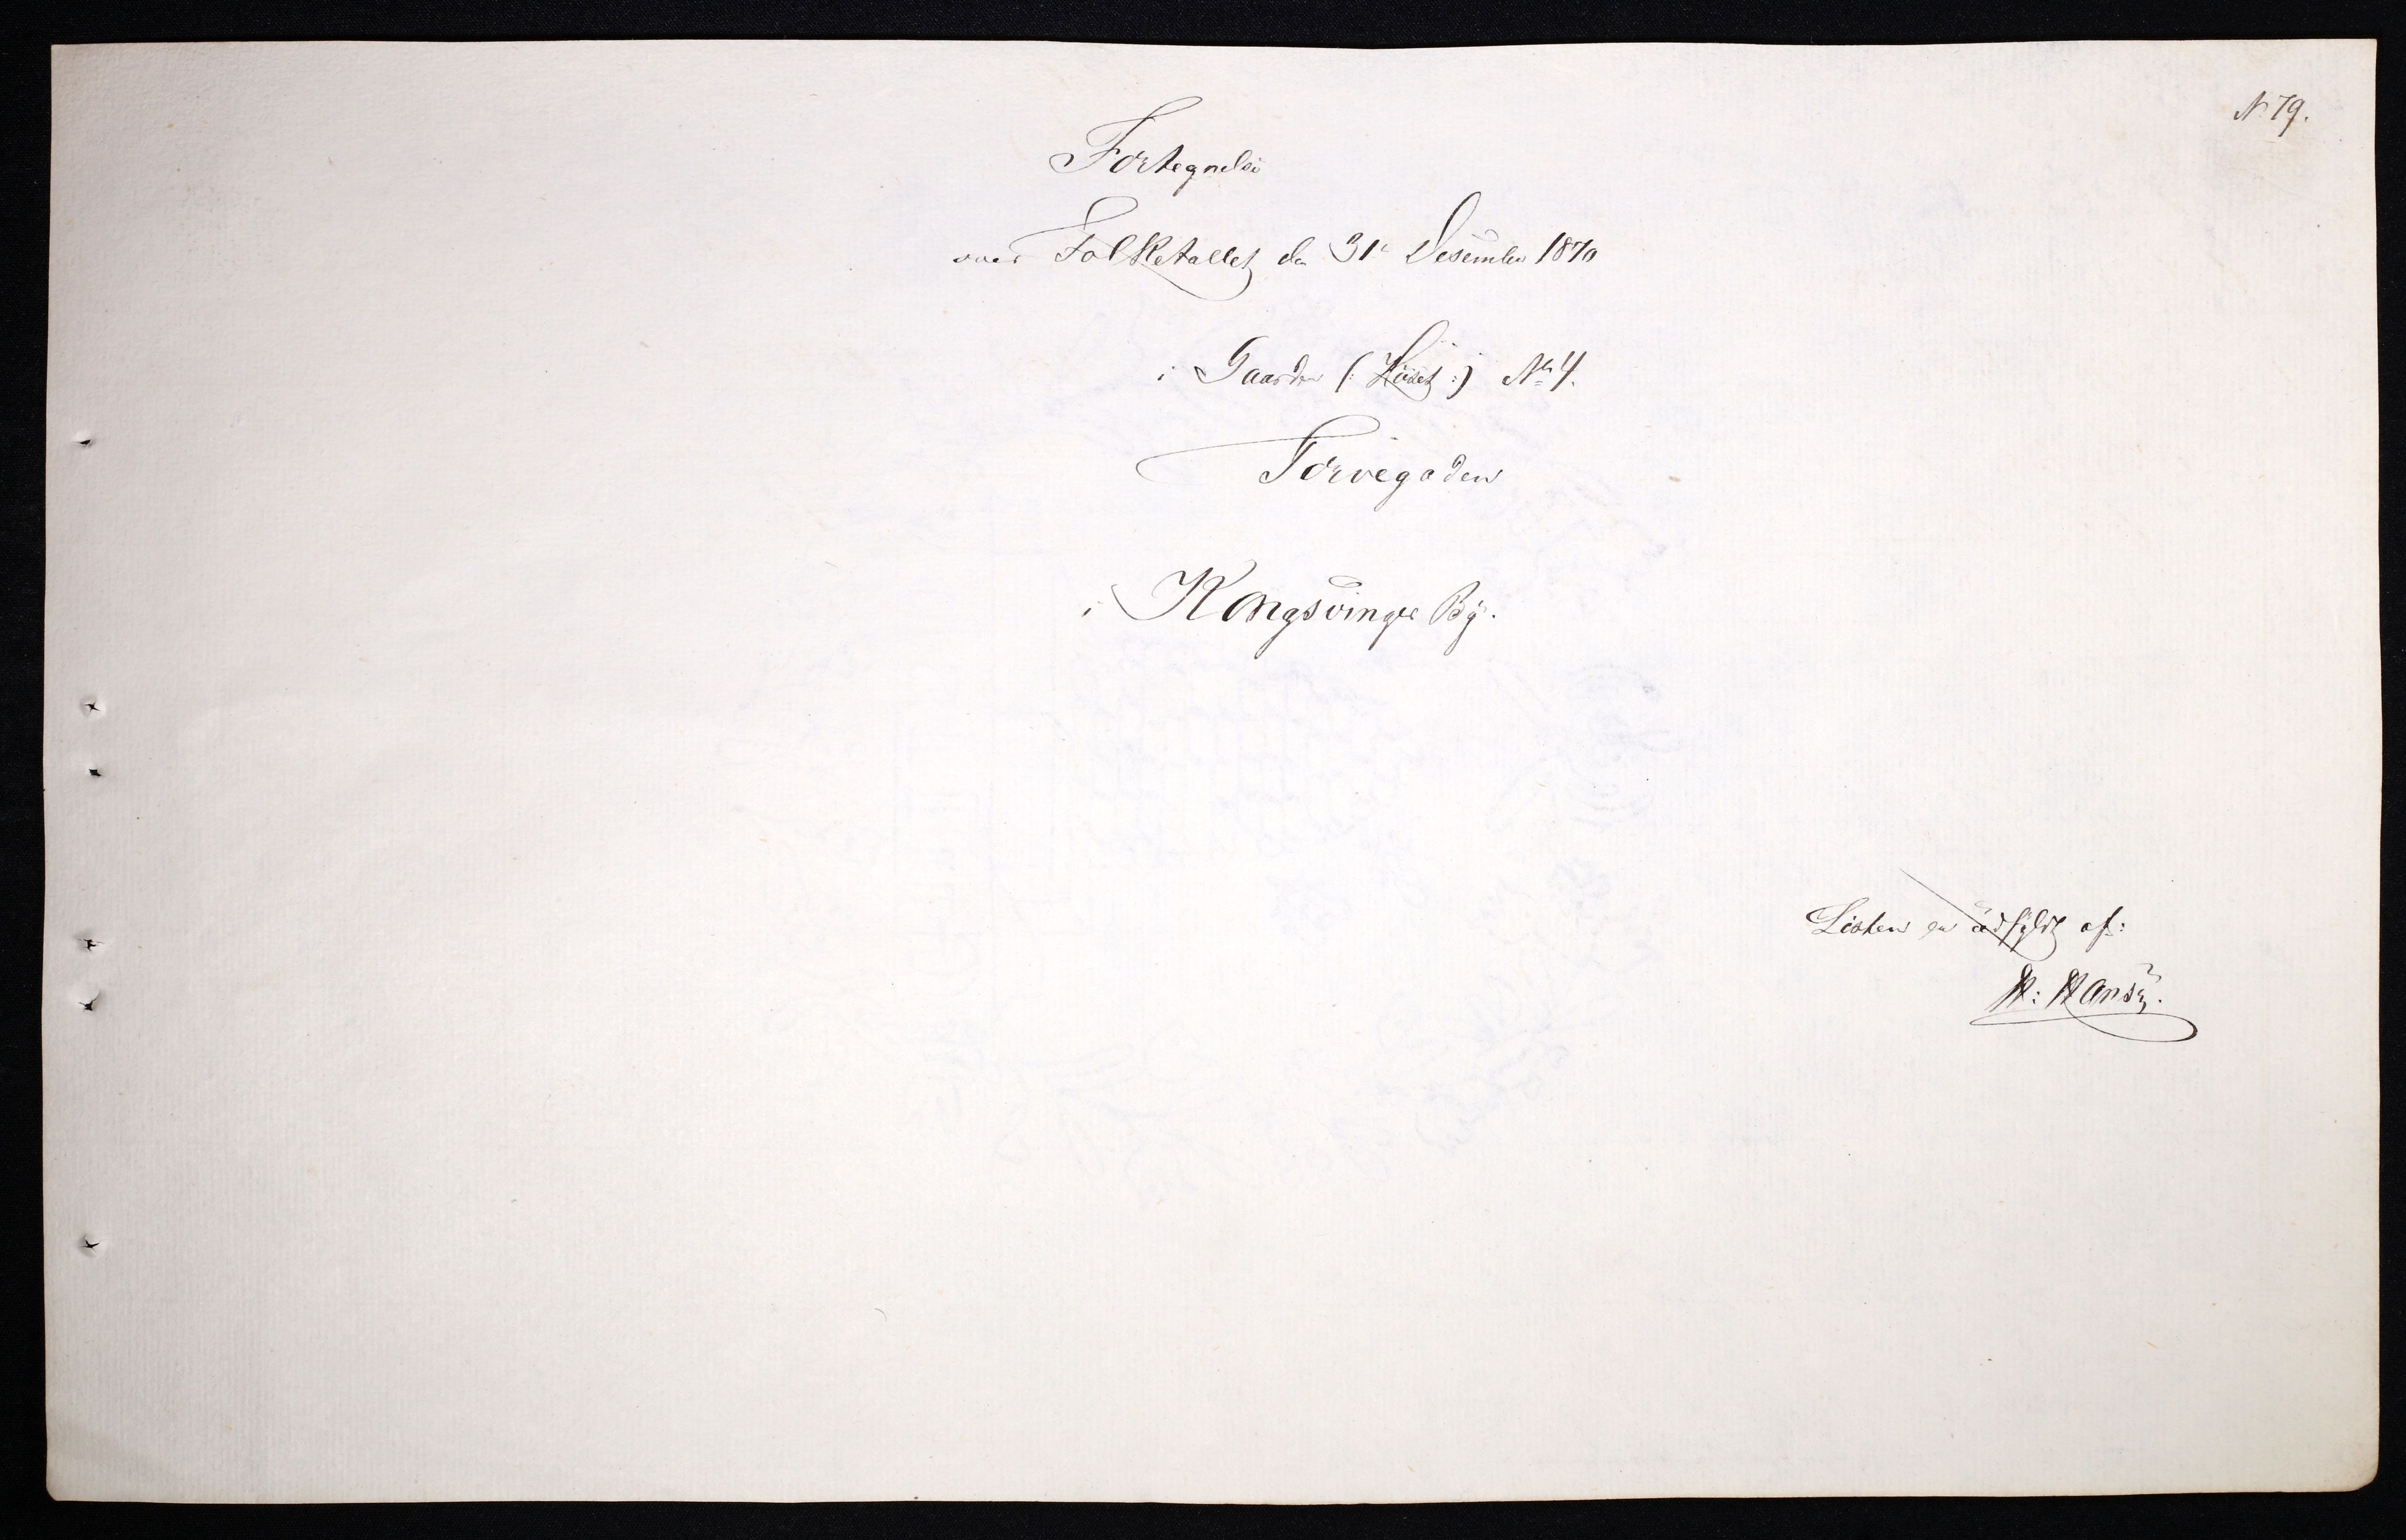 N 79.
Fortegnelse
over Folketallet den 31te Desember 1870
i Gaarden (: Huset :) No 4.
Torvegaden
i Kongsvinger By.
Listen er udfyldt af:
H: Hansen.